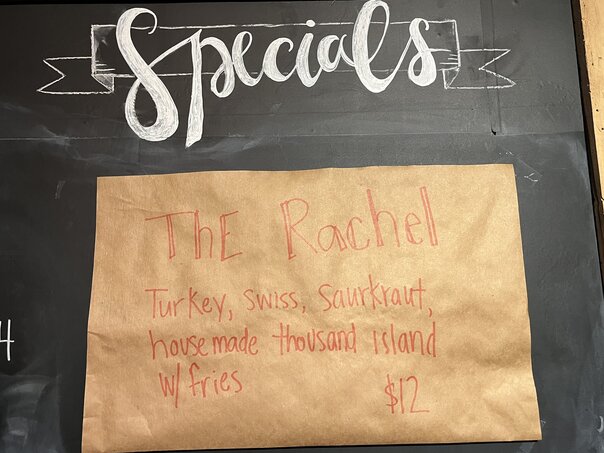 Specials
ThE Rachel
Turkey, swiss, saurkraut,
housemade thousand island
w/ fries $12
4